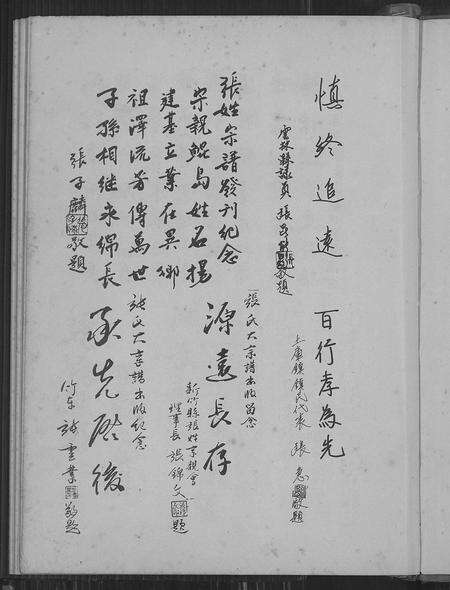 慎終追遠
雲林縣議員 張
敬題
百行孝為先
土庫鎮鎮民代表 張
敬題
張姓宗譜發刊紀念
宗親鯤島姓名揚
建基立業在異鄉
祖澤流芳傳萬世
子孫相繼永綿長
張子麟 敬題
張氏大宗譜出版留念
源遠長存
新竹縣張姓宗親會
理事長 張錦文 題
張氏大宗譜出版紀念
承先啓後
竹東 張雲業 敬題